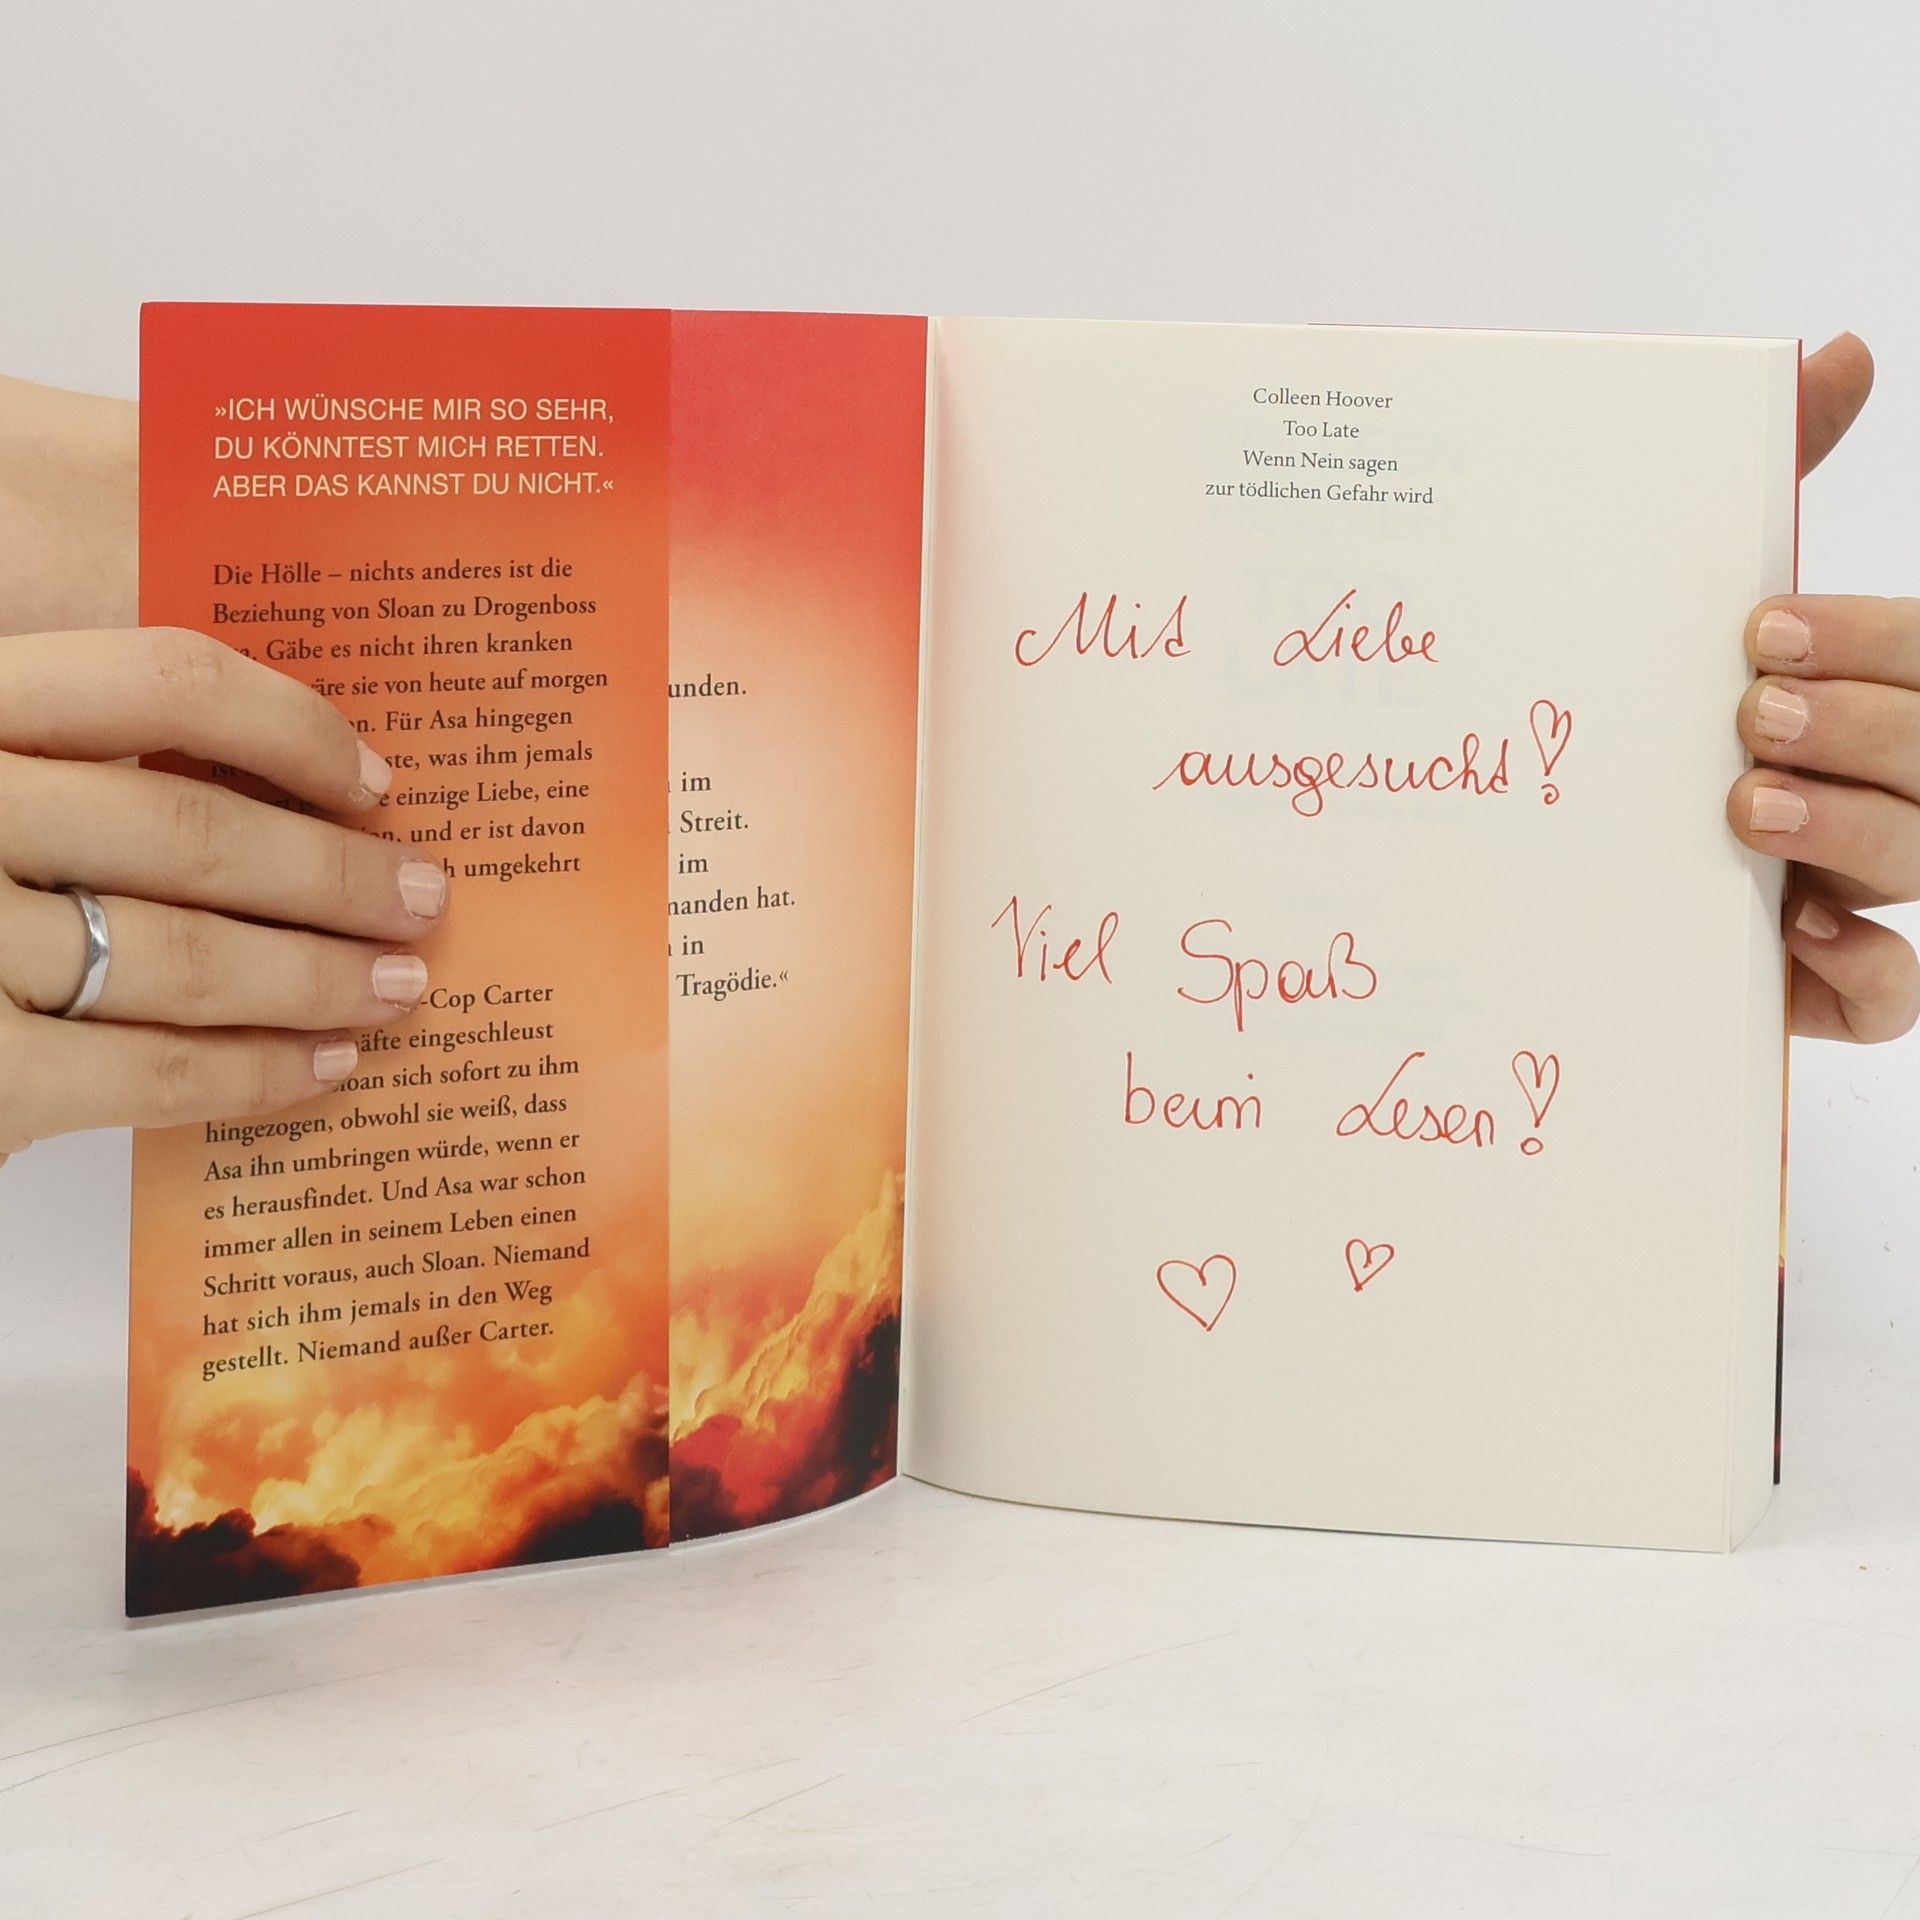 »ICH WÜNSCHE MIR SO SEHR,
DU KÖNNTEST MICH RETTEN.
ABER DAS KANNST DU NICHT.«
Die Hölle – nichts anderes ist die
Beziehung von Sloan zu Drogenboss
Gäbe es nicht ihren kranken
sie von heute auf morgen
Für Asa hingegen
was ihm jemals
einzige Liebe, eine
und er ist davon
umgekehrt
-Cop Carter
eingeschleust
sich sofort zu ihm
hingezogen, obwohl sie weiß, dass
Asa ihn umbringen würde, wenn er
es herausfindet. Und Asa war schon
immer allen in seinem Leben einen
Schritt voraus, auch Sloan. Niemand
hat sich ihm jemals in den Weg
gestellt. Niemand außer Carter.
unden.
im
Streit.
im
manden hat.
in
Tragödie.«
Colleen Hoover
Too Late
Wenn Nein sagen
zur tödlichen Gefahr wird
Mit Liebe
ausgesucht!
Viel Spaß
beim Lesen!